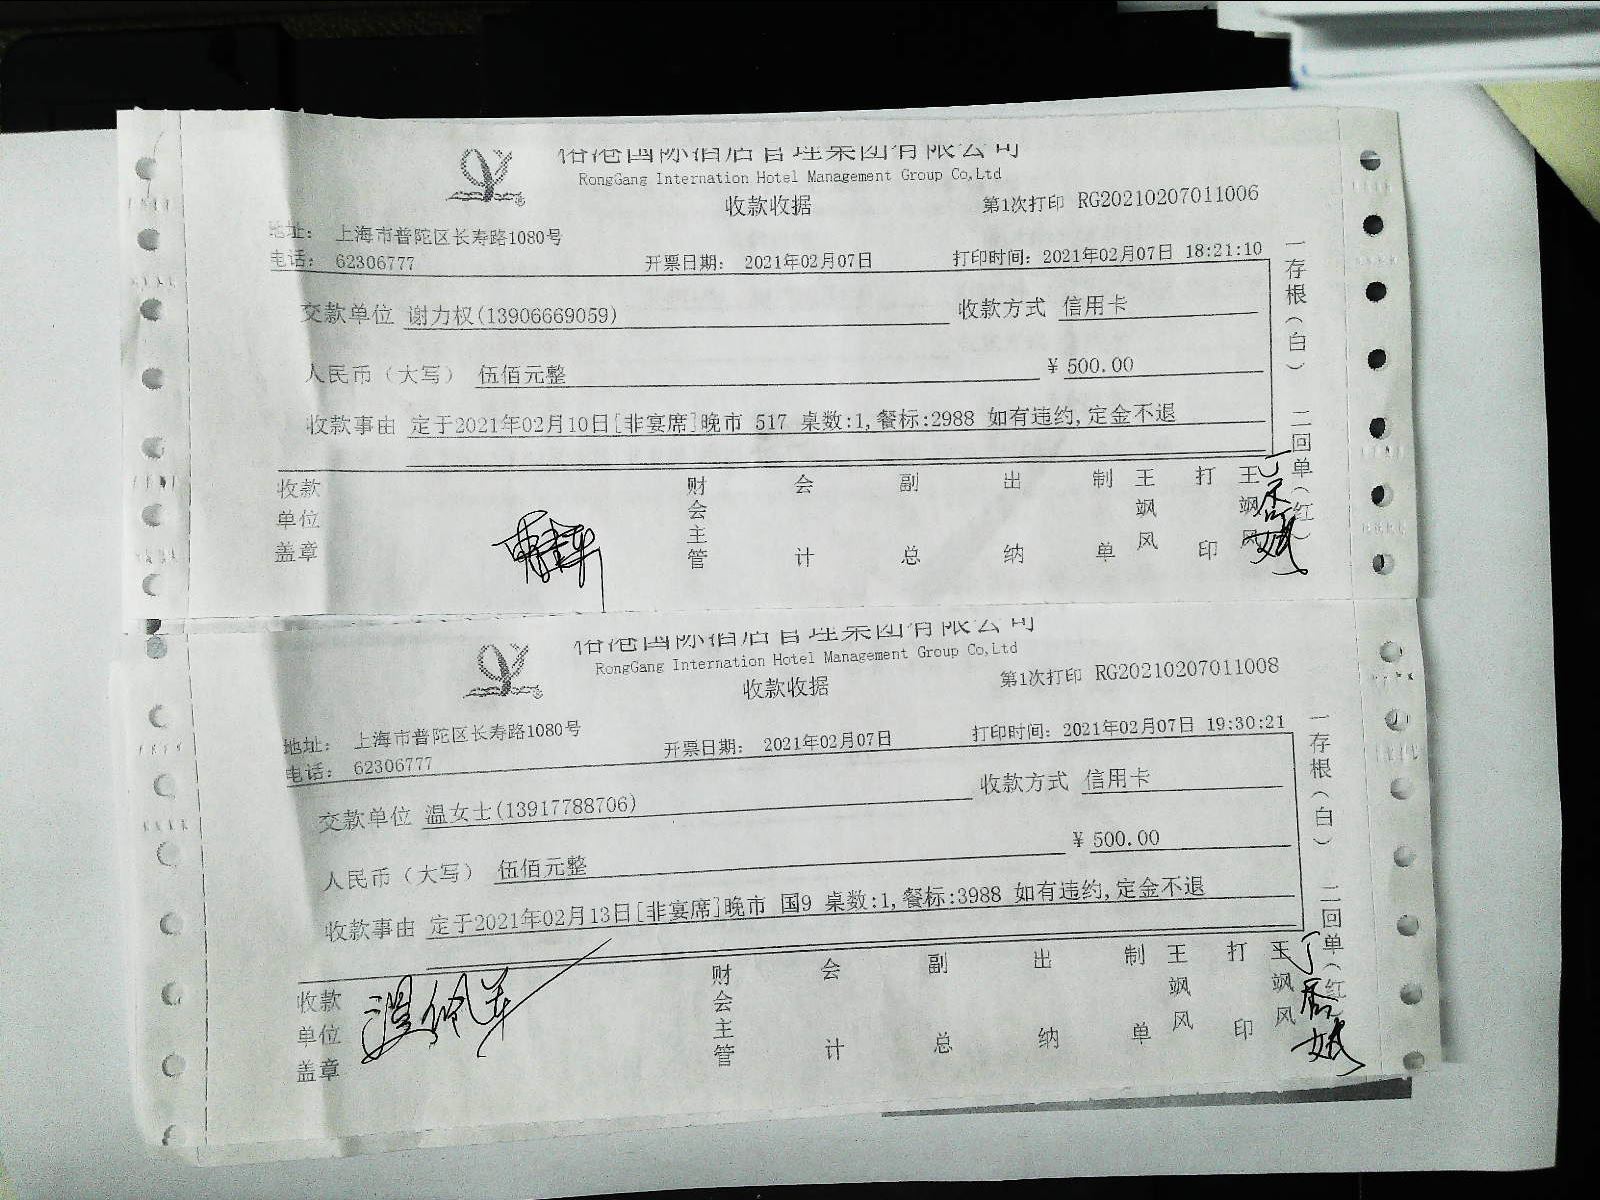 裕港国际酒店管理集团有限公司
RongGang Internation Hotel Management Group Co,Ltd
收款收据
第1次打印 RG20210207011006
地址： 上海市普陀区长寿路1080号
电话： 62306777
开票日期： 2021年02月07日
打印时间：2021年02月07日 18:21:10
交款单位 谢力权(13906669059)
收款方式 信用卡
人民币（大写） 伍佰元整
¥ 500.00
收款事由 定于2021年02月10日[非宴席]晚市 517 桌数:1,餐标:2988 如有违约,定金不退
一存根（白） 二回单（红）
收款单位盖章
财会主管
会计
副总
出纳
制单
王飒风
打印
王飒风
裕港国际酒店管理集团有限公司
RongGang Internation Hotel Management Group Co,Ltd
收款收据
第1次打印 RG20210207011008
地址： 上海市普陀区长寿路1080号
电话： 62306777
开票日期： 2021年02月07日
打印时间：2021年02月07日 19:30:21
交款单位 温女士(13917788706)
收款方式 信用卡
人民币（大写） 伍佰元整
¥ 500.00
收款事由 定于2021年02月13日[非宴席]晚市 国9 桌数:1,餐标:3988 如有违约,定金不退
一存根（白） 二回单（红）
收款单位盖章
财会主管
会计
副总
出纳
制单
王飒风
打印
王飒风